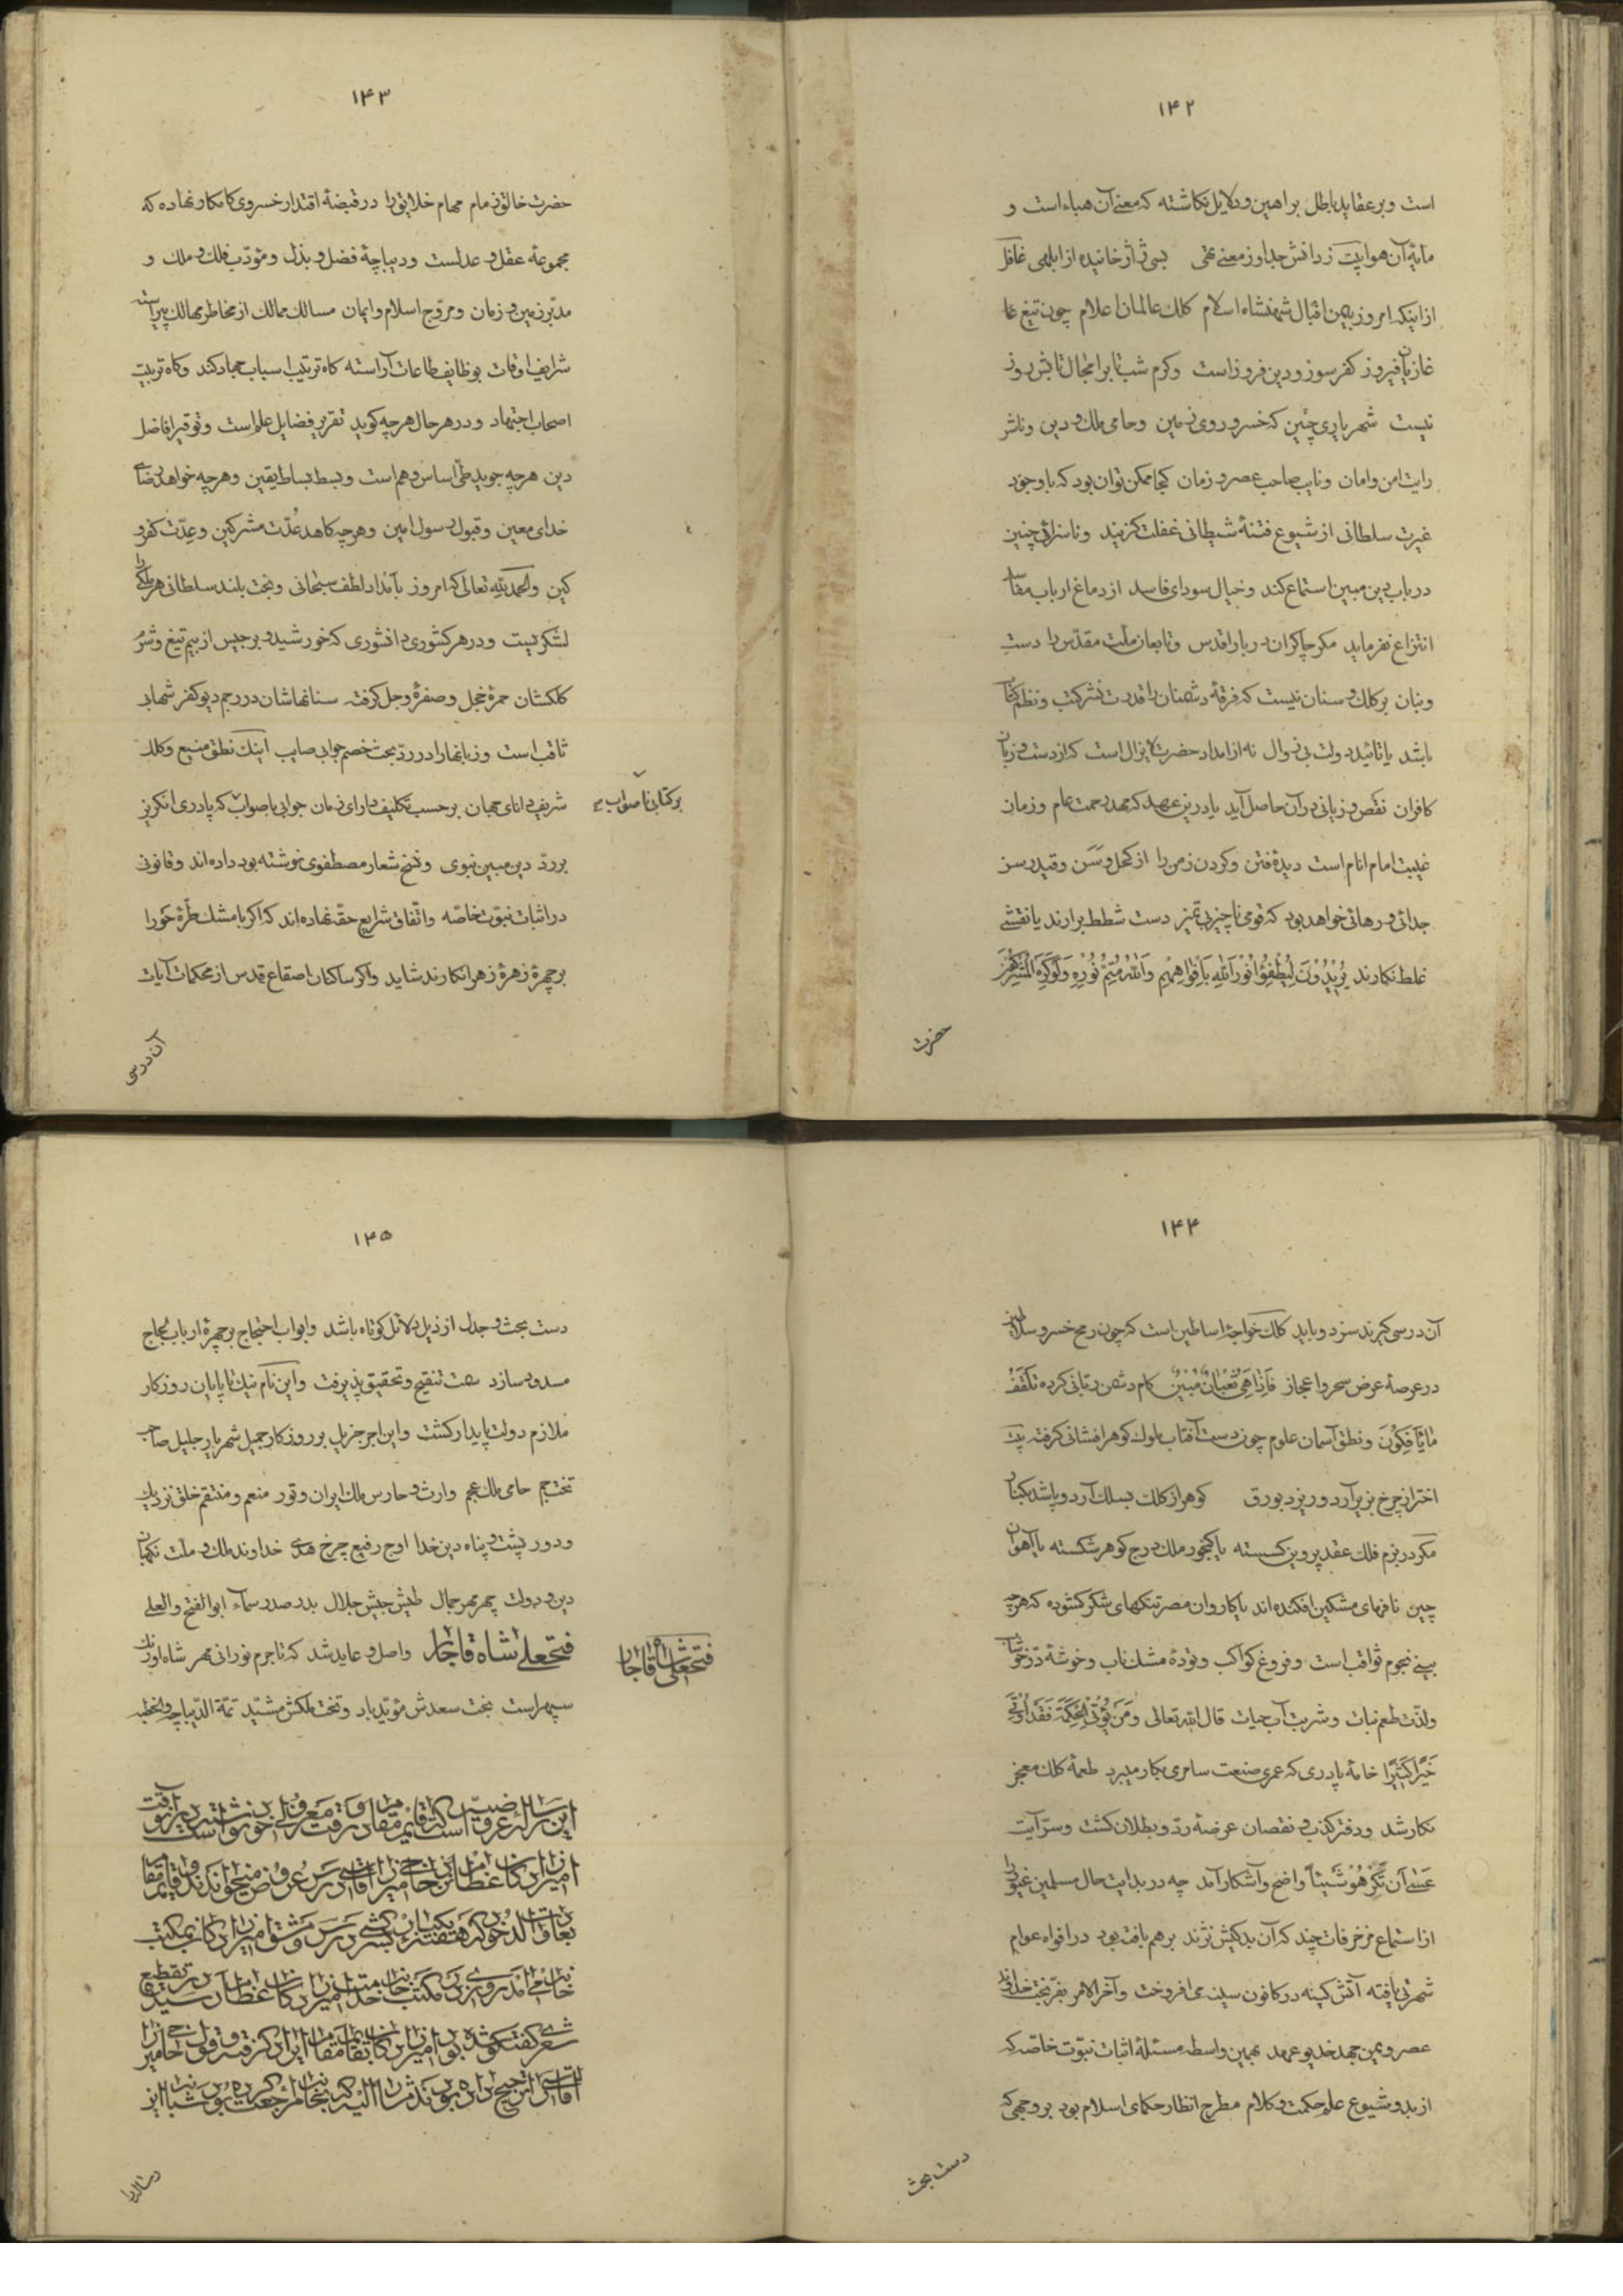 ۱۴۲
است و بر عقاید باطل براهین و دلایل نگاشته که معنی آن هباء است و
مایه آن هوا بیت ز دانش جدا و ز معنی تهی بسی ژاژ خائیده از ابلهی غافل
از اینکه امروز بیمن اقبال شهنشاه اسلام کلک عالمان اعلام چون تیغ
غازیان فیروز کفر سوز و دین فروز است و کرم شب تاب را مجال تابش روز
نیست شهریاری چنین که خسرو روی زمین و حامی ملک و دین و ناشر
رایت امن و امان و نایب صاحب عصر و زمان کجا ممکن توان بود که با وجود
غیرت سلطانی از شیوع فتنهٔ شیطانی غفلت گزیند و ناسزائی چنین
در باب دین مبین استماع کند و خیال سودای فاسد از دماغ ارباب مفاسد
انتزاع نفرماید مگر چاکران دربار اقدس و تابعان ملت مقدس را دست
و بنان بر کلک و سنان نیست که فرقهٔ دشمنان را قدرت نشر کتب و نظم کتائب
باشد یا تائید دولت بی زوال نه از امداد حضرت لایزال است که از دست و زبان
کافران نقص و زیانی در آن حاصل آید یا درین عهد که مهد رحمت عام و زمان
غیبت امام انام است دیدهٔ فتن و گردن زمن را از کحل وسن و قید رسن
جدائی و رهائی خواهد بود که قومی ناچیز بی تمیز دست شطط برارند یا نقشی
غلط نگارند یُرِیدُونَ لِیُطْفِؤُا نُورَ اللّٰهِ بِأَفْوَاهِهِمْ وَاللّٰهُ مُتِمُّ نُورِهِ وَلَوْ کَرِهَ الْمُشْرِکُونَ
حضرت
۱۴۳
حضرت خالق زمام مهام خلایق را در قبضهٔ اقتدار خسروی کامکار نهاده که
مجموعهٔ عقل و عدلست و دیباچهٔ فضل و بذل و مؤدّب فلک و ملک و
مدبّر زمین و زمان و مروّج اسلام و ایمان مسالک ممالک از مخاطر مهالک پیراسته
شرایف اوقات بوظایف طاعات آراسته گاه ترتیب اسباب جهاد کند و گاه تربیت
اصحاب اجتهاد و در هر حال هر چه گوید تقریر فضایل علم است و توقیر افاضل
دین هر چه جوید طیّ اساس وهم است و بسط بساط یقین و هر چه خواهد رضای
خدای معین و قبول رسول امین و هر چه کاهد عُدّت مشرکین و عِدّت کفر و
کین والحمد لله تعالی که امروز بامداد لطف سبحانی و بخت بلند سلطانی هر ملکی را
لشکریست و در هر کشوری دانشوری که خورشید و برجیس از بیم تیغ و شرم
کلکشان حمرهٔ خجل و صفرهٔ وجل گرفته سنانهاشان در رجم دیو کفر شهاب
ثاقب است و زبانها را در ردّ بحث خصم جوابی صایب اینک نطق منیع و کلک
شریف دانای جهان بر حسب تکلیف دارای زمان جوابی باصواب که پادری انگریز
بر کتابی ناصواب
بر ردّ دین مبین نبوی و نسخ شعار مصطفوی نوشته بود داده اند و قانونی
در اثبات نبوّت خاصّه و اتّفاق شرایع حقّه نهاده اند که اگر با مشک طرّهٔ حورا
بر چهرهٔ زهرهٔ زهرا نگارند شاید و اگر ساکنان اصقاع قدس از محکمات آیات
آن درسی
۱۴۴
آن درسی گیرند سزد و باید کلک خواجهٔ اساطین است که چون رمح خسرو سلاطین
در عرصهٔ عرض سحر و اعجاز فَاِذَا هِیَ ثُعْبَانٌ مُبِینٌ کام دشمن ربّانی کرده تَلْقَفُ
مَا یَأْفِکُونَ و نطق آسمان علوم چون دست آفتاب ملوک گوهر افشانی گرفته بیت
اختر از چرخ بزیر آرد و ریزد بورق گوهر از کلک بسلک آرد و پاشد بکنار
مگر در بزم فلک عقد پروین گسسته یا گنجور ملک درج گوهر شکسته یا آهوان
چین نافهای مشکین افکنده اند یا کاروان مصر تنکهای شکر گشوده که هرچه
بینی نجوم ثواقب است و فروغ کواکب و تودهٔ مشک ناب و خوشهٔ درّ خوشاب
و لذّت طعم نبات و شربت آب حیات قال الله تعالی وَمَن یُؤْتَ الْحِکْمَةَ فَقَدْ أُوتِیَ
خَیْراً کَثِیراً خامهٔ پادری که عمری صنعت سامری بکار میبرد طعمهٔ کلک معجز
نگار شد و دفتر کذب و نقصان عرضهٔ ردّ و بطلان گشت و سرّ آیت
عَسٰی أَن تَکْرَهُوا شَیْئاً واضح و آشکار آمد چه در بدایت حال مسلمین غیور را
از استماع مزخرفات چند که آن بدکیش نژند بر هم بافته بود در افواه عوام
شهرتی یافته آتش کینه در کانون سینه می افروخت و آخر الامر بفرّ بخت خداوند
عصر و یمن جهد خدیو عهد بهمین واسطه مسئلهٔ اثبات نبوّت خاصّه که
از بدو شیوع علم حکمت و کلام مطرح انظار حکمای اسلام بود بر وجهی که
دست بحث
۱۴۵
دست بحث و جدل از ذیل دلائل کوتاه باشد و ابواب احتجاج بر چهرهٔ ارباب لجاج
مسدود سازد سمت تنقیح و تحقیق پذیرفت و این نام نیک تا پایان روزگار
ملازم دولت پایدار گشت و این اجر جزیل بر روزگار جمیل شهریار جلیل صاحب
تخت جم حامی ملک عجم وارث و حارس ملک ایران و تور منعم و منتقم خلق نزدیک
و دور پشت و پناه دین خدا اوج رفیع چرخ هدی خداوند ملک و ملت نگهبان
دین و دولت چهر مهر جمال طیش جیش جلال بدر صدر سماء ابوالفتح والعلی
فتحعلی شاه قاجار واصل و عاید شد که تا جرم نورانی مهر شاه اورنک
فتحعلی شاه قاجار
سپهر است بخت سعدش مؤیّد باد و تخت ملکش مشیّد تمّة الدّیباچه والخطبه
این رساله عروضیه است که قایم مقام در وقت معزولی خود نوشته است
رساله را